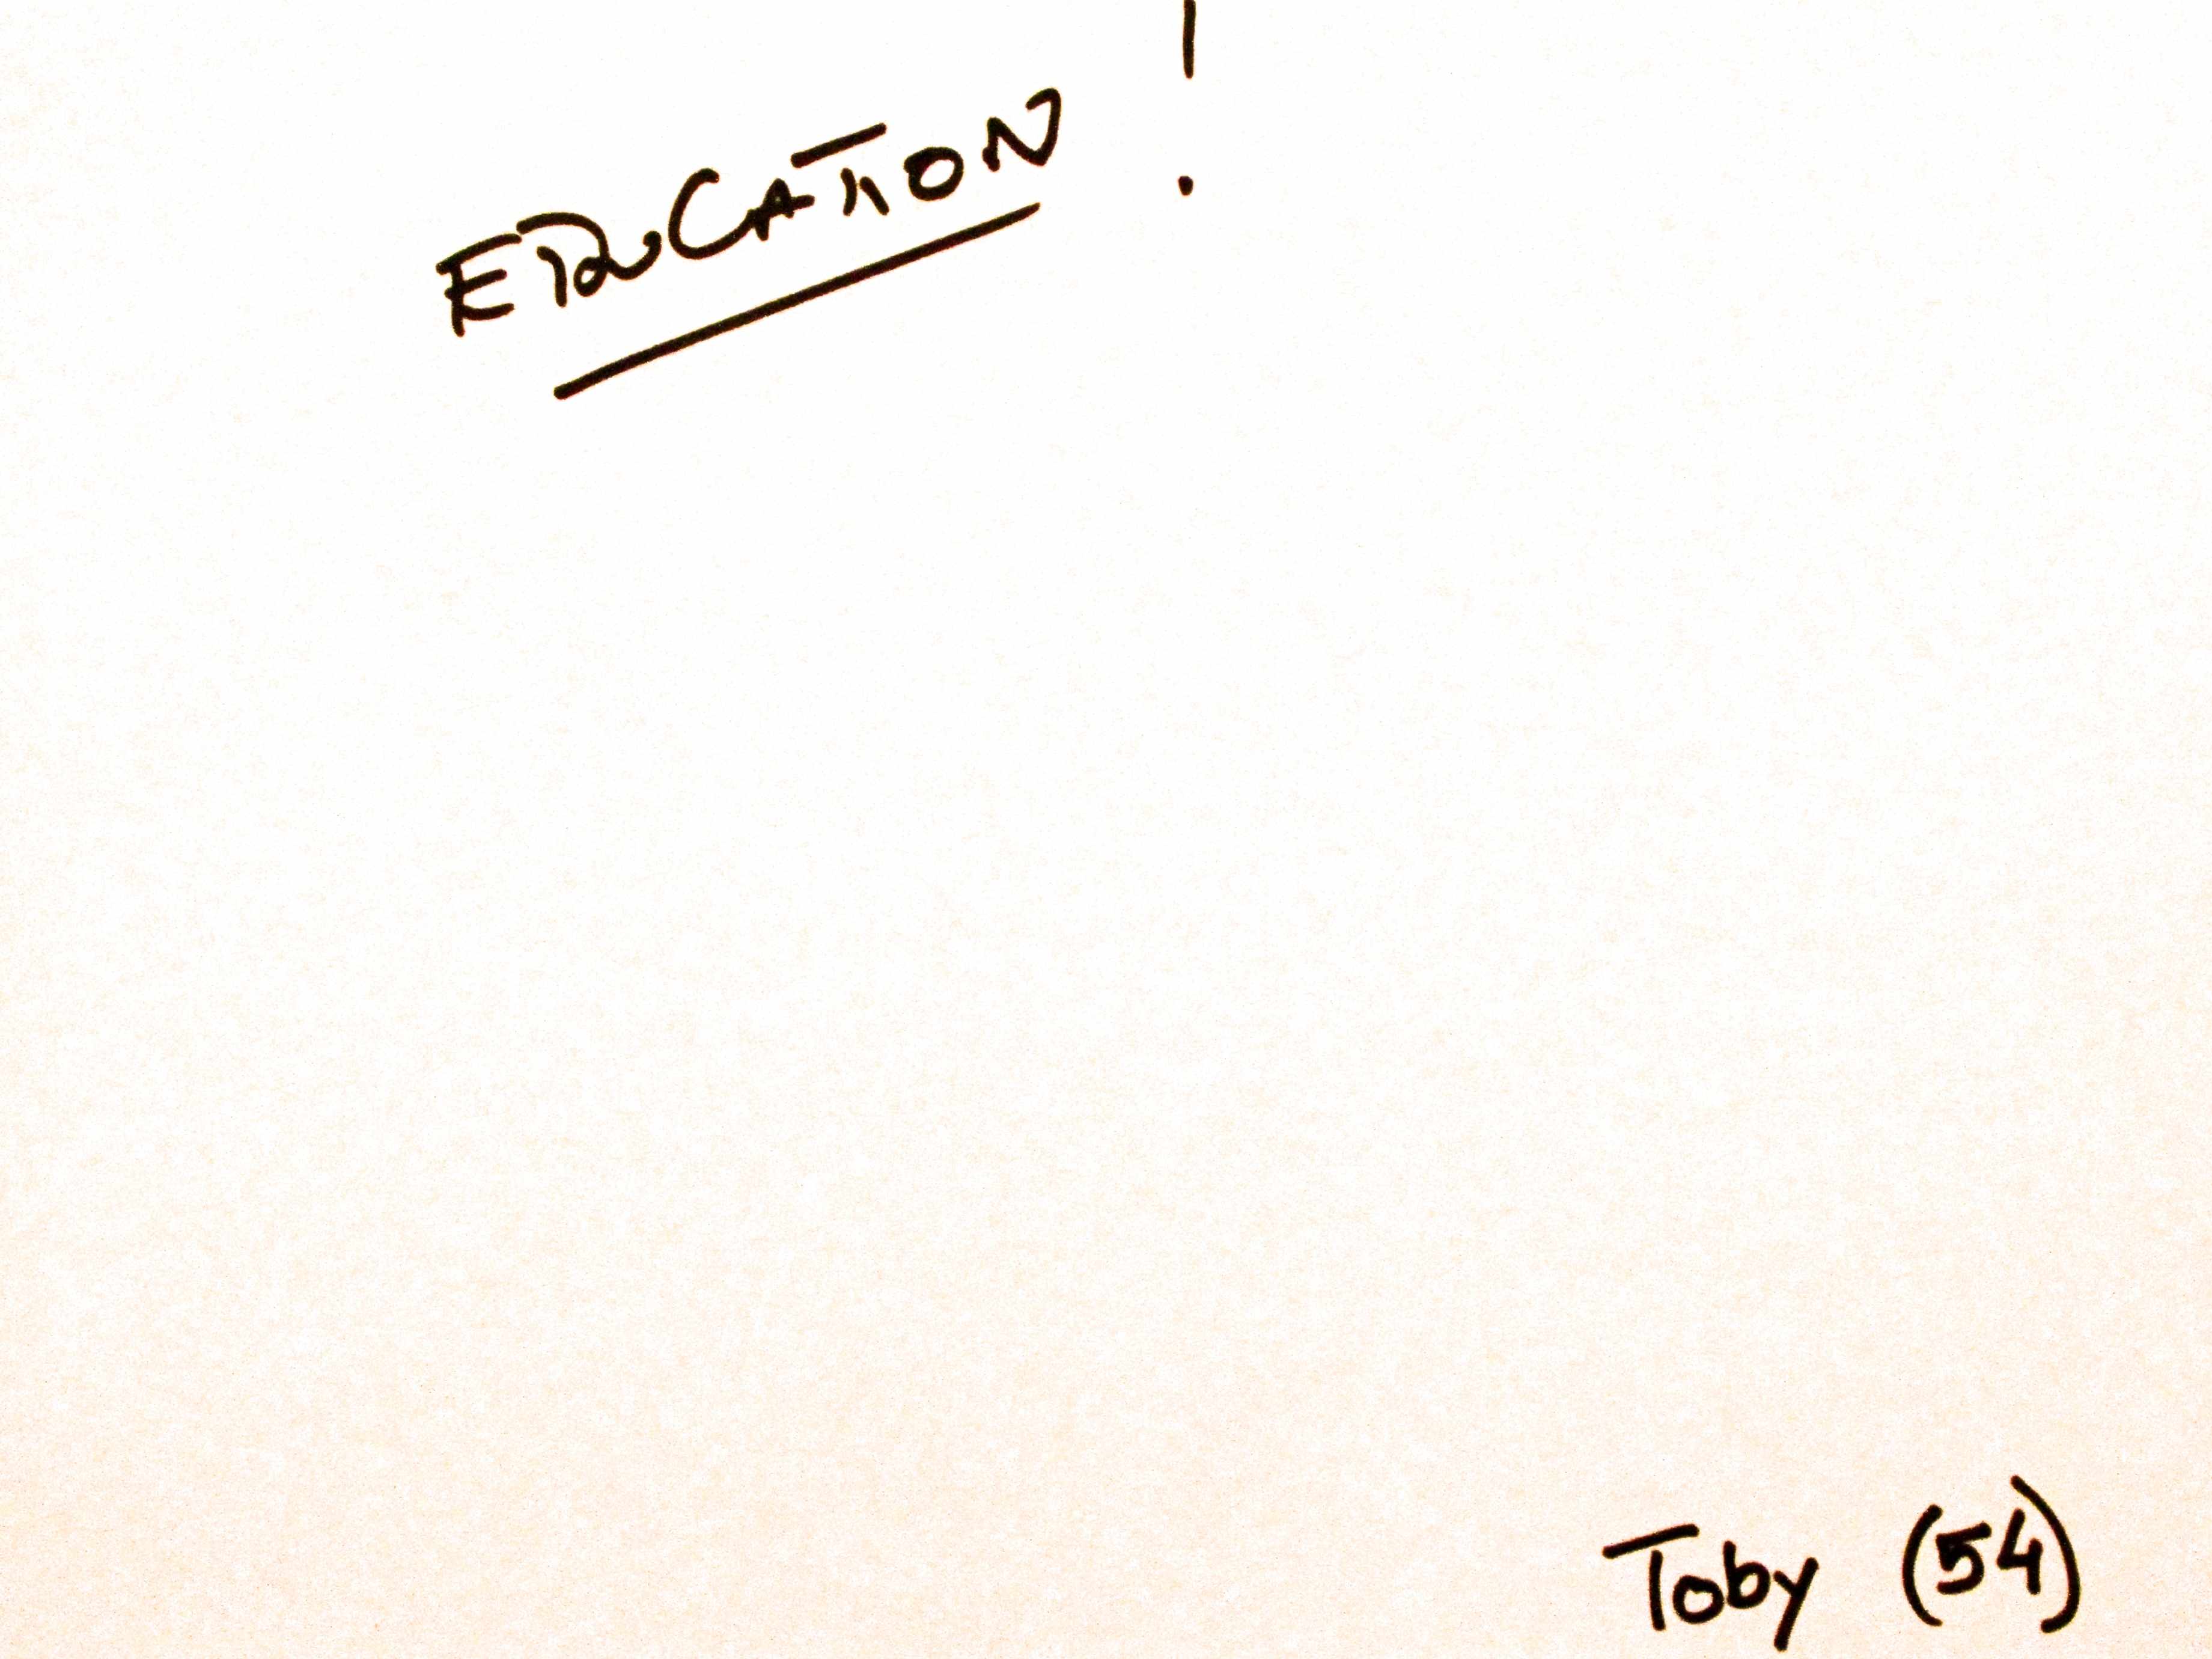 EDUCATION !
Toby (54)